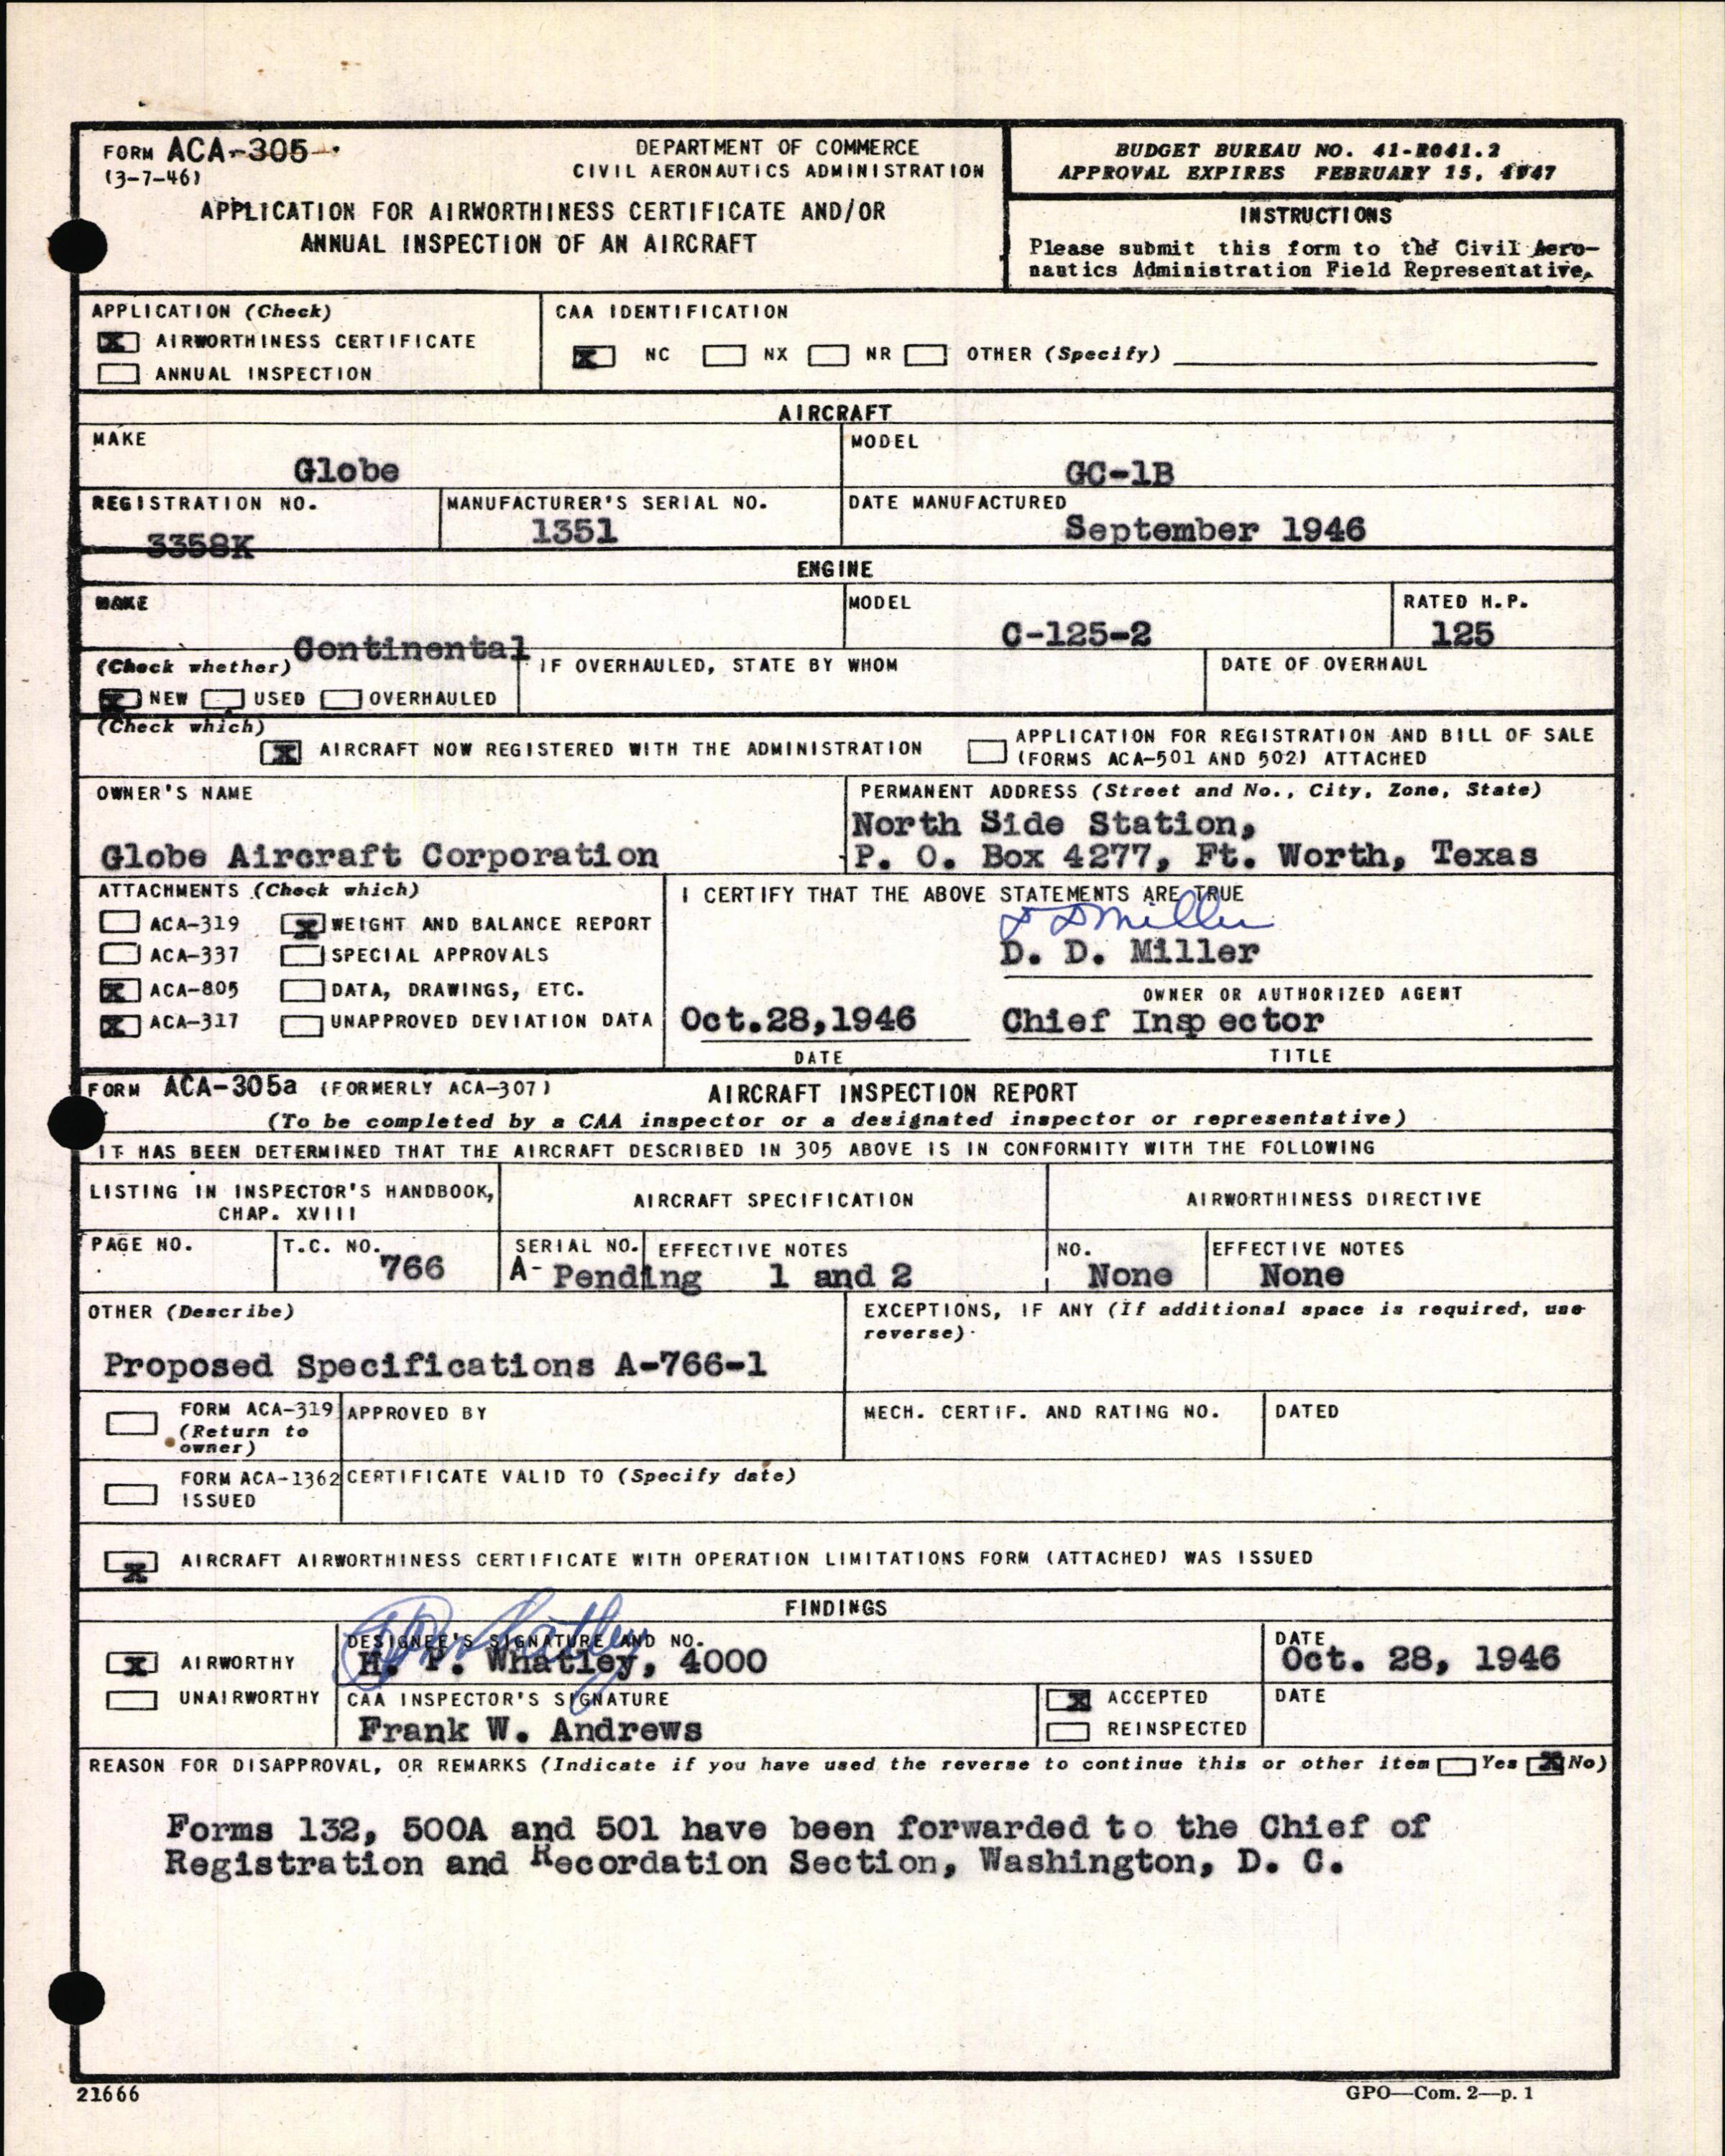 FORM ACA-305
(3-7-46)
DEPARTMENT OF COMMERCE
CIVIL AERONAUTICS ADMINISTRATION
APPLICATION FOR AIRWORTHINESS CERTIFICATE AND/OR
ANNUAL INSPECTION OF AN AIRCRAFT
BUDGET BUREAU NO. 41-R041.2
APPROVAL EXPIRES FEBRUARY 15, 1947
INSTRUCTIONS
Please submit this form to the Civil Aero-
nautics Administration Field Representative.
APPLICATION (Check)
X AIRWORTHINESS CERTIFICATE
ANNUAL INSPECTION
CAA IDENTIFICATION
X NC NX NR OTHER (Specify)
AIRCRAFT
MAKE
Globe
MODEL
GC-1B
REGISTRATION NO.
3358K
MANUFACTURER'S SERIAL NO.
1351
DATE MANUFACTURED
September 1946
ENGINE
MAKE
Continental
MODEL
C-125-2
RATED H.P.
125
(Check whether)
X NEW USED OVERHAULED
IF OVERHAULED, STATE BY WHOM
DATE OF OVERHAUL
(Check which)
X AIRCRAFT NOW REGISTERED WITH THE ADMINISTRATION
APPLICATION FOR REGISTRATION AND BILL OF SALE
(FORMS ACA-501 AND 502) ATTACHED
OWNER'S NAME
Globe Aircraft Corporation
PERMANENT ADDRESS (Street and No., City, Zone, State)
North Side Station,
P. O. Box 4277, Ft. Worth, Texas
ATTACHMENTS (Check which)
ACA-319 X WEIGHT AND BALANCE REPORT
ACA-337 SPECIAL APPROVALS
X ACA-805 DATA, DRAWINGS, ETC.
X ACA-317 UNAPPROVED DEVIATION DATA
I CERTIFY THAT THE ABOVE STATEMENTS ARE TRUE
D D Miller
D. D. Miller
OWNER OR AUTHORIZED AGENT
Oct.28,1946 Chief Insp ector
DATE TITLE
FORM ACA-305a (FORMERLY ACA-307) AIRCRAFT INSPECTION REPORT
(To be completed by a CAA inspector or a designated inspector or representative)
IT HAS BEEN DETERMINED THAT THE AIRCRAFT DESCRIBED IN 305 ABOVE IS IN CONFORMITY WITH THE FOLLOWING
LISTING IN INSPECTOR'S HANDBOOK,
CHAP. XVIII
AIRCRAFT SPECIFICATION
AIRWORTHINESS DIRECTIVE
PAGE NO.
T.C. NO.
766
SERIAL NO. EFFECTIVE NOTES
A- Pending 1 and 2
NO.
None
EFFECTIVE NOTES
None
OTHER (Describe)
Proposed Specifications A-766-1
EXCEPTIONS, IF ANY (If additional space is required, use
reverse)
FORM ACA-319
(Return to
owner)
APPROVED BY
MECH. CERTIF. AND RATING NO.
DATED
FORM ACA-1362
ISSUED
CERTIFICATE VALID TO (Specify date)
X AIRCRAFT AIRWORTHINESS CERTIFICATE WITH OPERATION LIMITATIONS FORM (ATTACHED) WAS ISSUED
FINDINGS
X AIRWORTHY
UNAIRWORTHY
DESIGNEE'S SIGNATURE AND NO.
H. P. Whatley, 4000
DATE
Oct. 28, 1946
CAA INSPECTOR'S SIGNATURE
Frank W. Andrews
X ACCEPTED
REINSPECTED
DATE
REASON FOR DISAPPROVAL, OR REMARKS (Indicate if you have used the reverse to continue this or other item Yes X No)
Forms 132, 500A and 501 have been forwarded to the Chief of
Registration and Recordation Section, Washington, D. C.
21666
GPO—Com. 2—p. 1